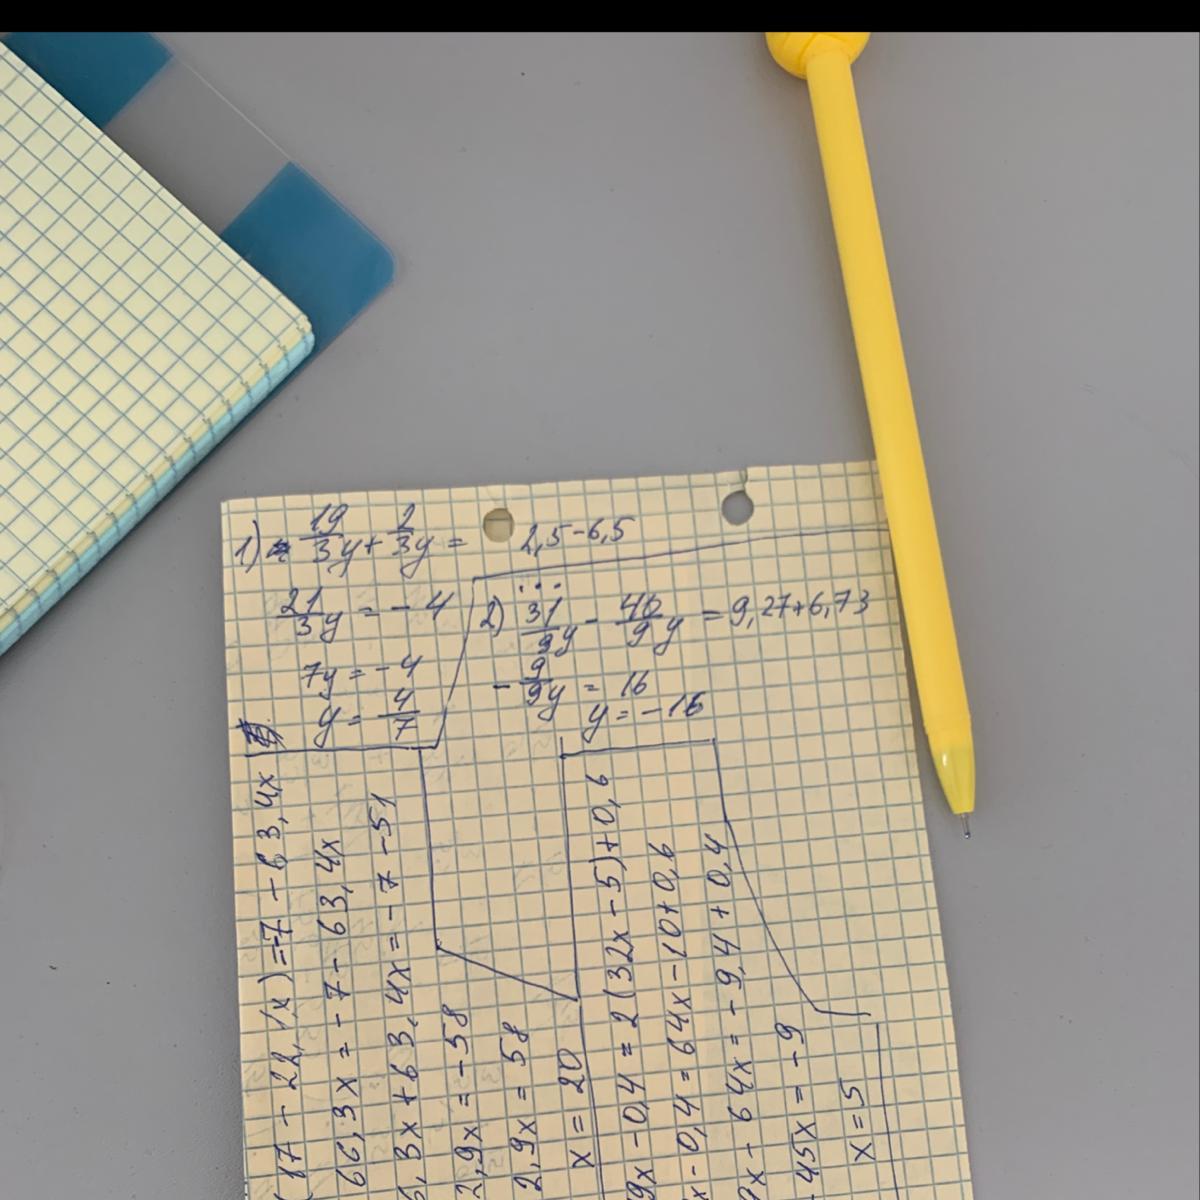 1) 19/3 y + 2/3 y = 2,5 - 6,5
21/3 y = - 4
7y = - 4
y = - 4/7
2) 31/9 y - 40/9 y = 9,27 + 6,73
- 9/9 y = 16
y = - 16
(17 - 22,1x) = -7 - 63,4x
66,3x = - 7 - 63,4x
6,3x + 63,4x = - 7 - 51
2,9x = - 58
2,9x = 58
x = 20
9x - 0,4 = 2(32x - 5) + 0,6
x - 0,4 = 64x - 10 + 0,6
9x - 64x = - 9,4 + 0,4
- 45x = - 9
x = 5